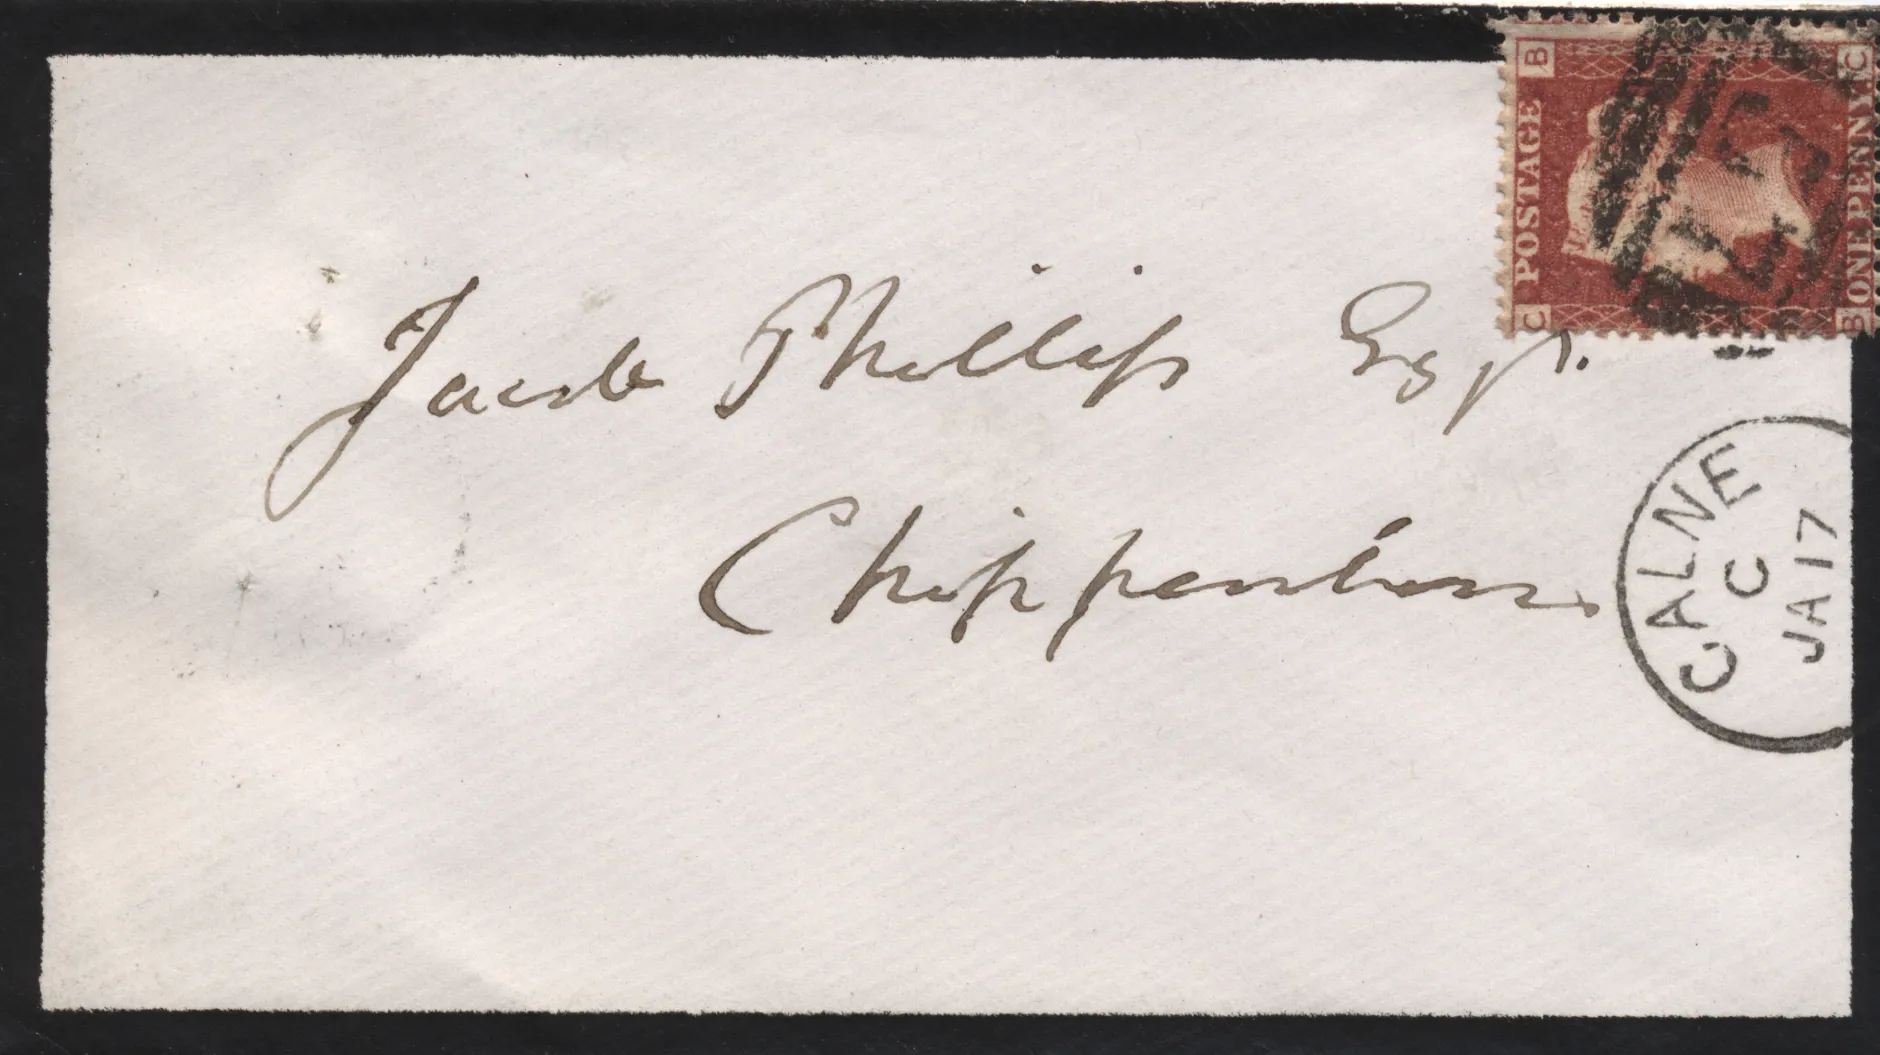 Jacob Phillips Esqr.
Chippenham
B C
POSTAGE
ONE PENNY
C B
CALNE
C
JA 17